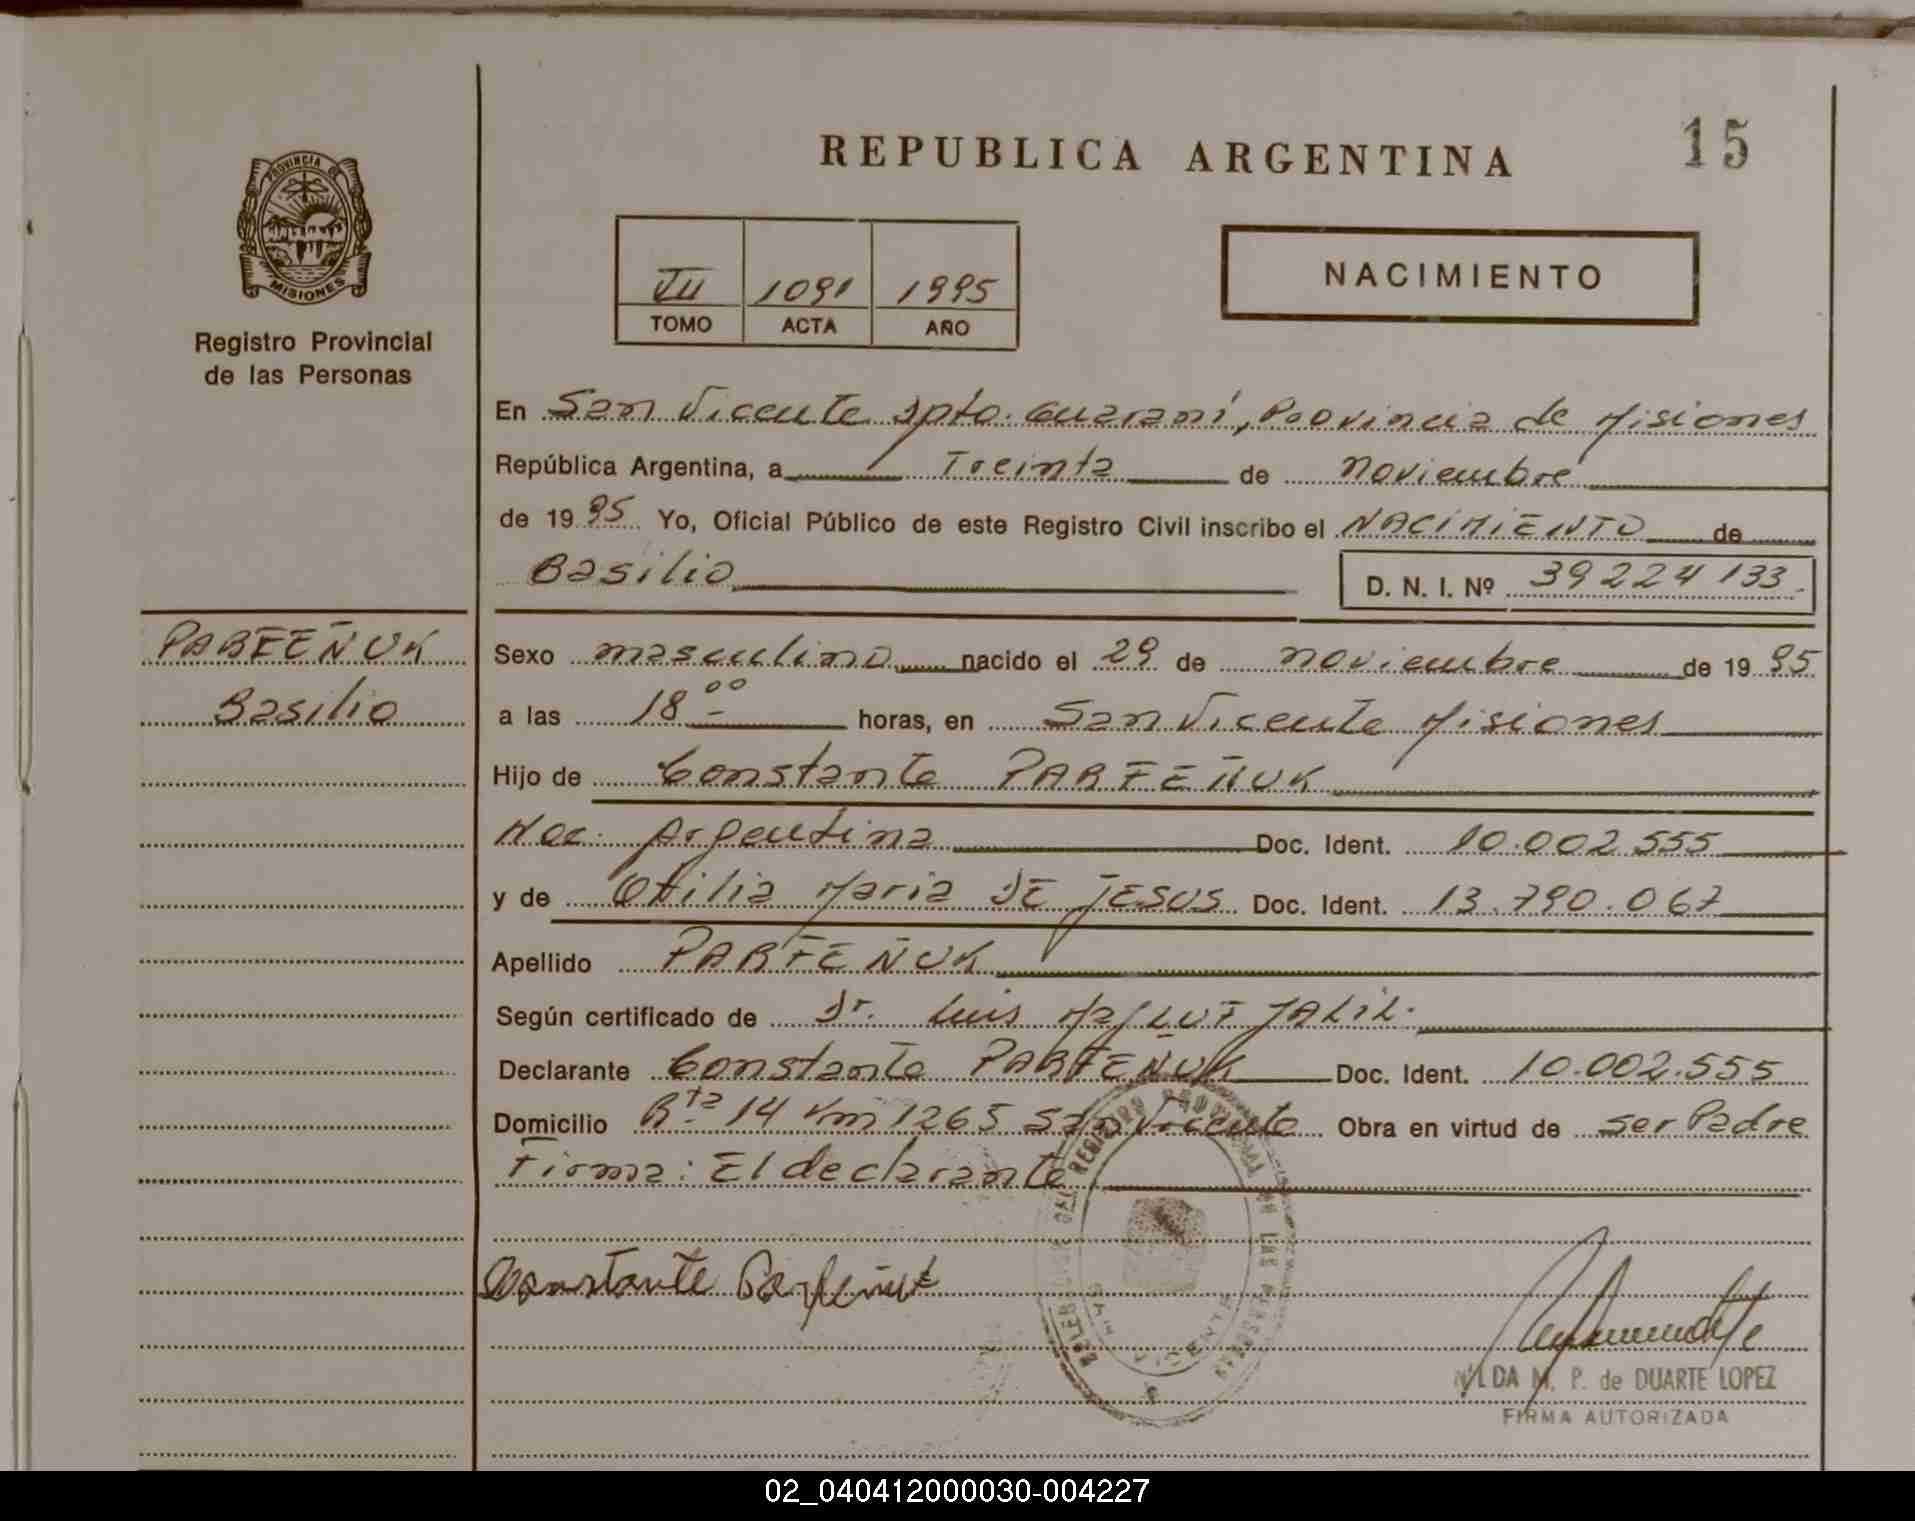 REPUBLICA ARGENTINA
15
PROVINCIA DE
MISIONES
Registro Provincial
de las Personas
VII 1091 1995
TOMO ACTA AÑO
NACIMIENTO
En San Vicente Dpto. Guaraní, Provincia de Misiones
República Argentina, a Treinta de noviembre
de 1995 Yo, Oficial Público de este Registro Civil inscribo el NACIMIENTO de
Basilio
D. N. I. Nº 39224133.
PARFEÑUK
Basilio
Sexo masculino nacido el 29 de noviembre de 1995
a las 18 00 horas, en San Vicente Misiones
Hijo de Constante PARFEÑUK
Nac: Argentina Doc. Ident. 10.002.555
y de Otilia Maria DE JESUS Doc. Ident. 13.790.067
Apellido PARFEÑUK
Según certificado de Dr. Luis JALIL.
Declarante Constante PARFEÑUK Doc. Ident. 10.002.555
Domicilio Rta 14 Km 1265 San Vicente Obra en virtud de ser Padre
Firma: El declarante
Constante Parfeñuk
REGISTRO PROVINCIAL DE LAS PERSONAS
SAN VICENTE
NILDA M. P. de DUARTE LOPEZ
FIRMA AUTORIZADA
02_040412000030-004227